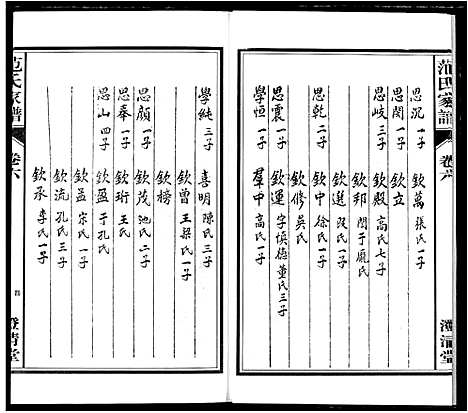 范氏家譜
卷六
澄清堂
思沉 一子
欽萬 張氏一子
思閔 一子
欽立
思岐 三子
欽殷 高氏七子
欽邦 閆于龐氏
欽選 段氏一子
思乾 二子
欽中 徐氏一子
欽修 吳氏
思震 二子
欽運 字慎德董氏三子
學恒 一子
羣中 高氏一子
學純 三子
喜明 陳氏三子
欽曾 王梁氏一子
欽榜
思顏 一子
欽茂 池氏二子
思奉 一子
欽珩 王氏
思山 四子
欽盈 于孔氏
欽益 宋氏一子
欽流 孔氏三子
欽承 李氏一子
范氏家譜
卷六
澄清堂